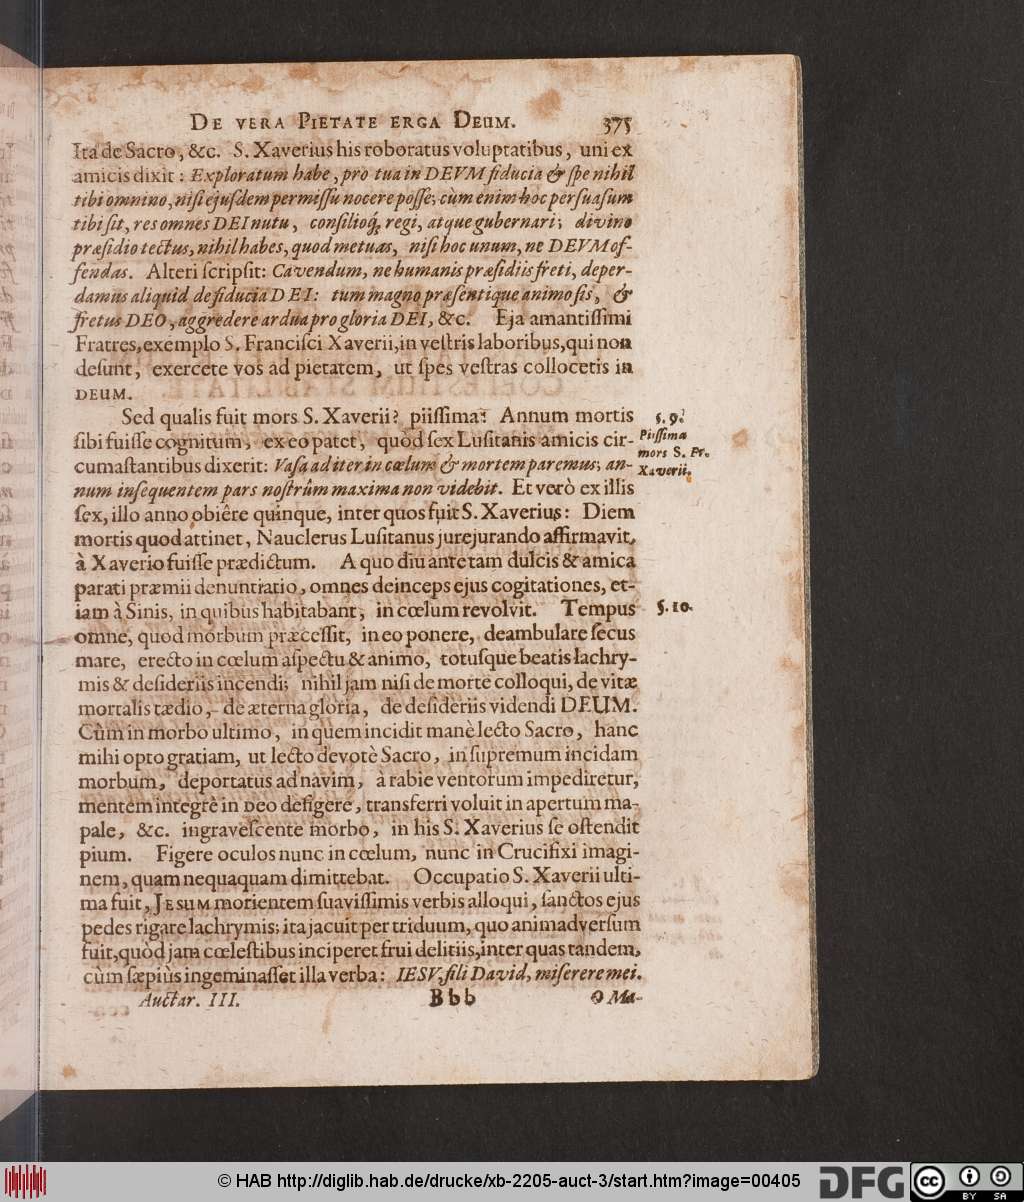 DE VERA PIETATE ERGA DEUM. 375
Ita de Sacro, &c. S. Xaverius his roboratus voluptatibus, uni ex
amicis dixit: Exploratum habe, pro tua in DEVM fiducia & spe nihil
tibi omnino, nisi ejusdem permissu nocere posse; cùm enim hoc persuasum
tibi sit, res omnes DEI nutu, consilioq́; regi, atque gubernari; divino
præsidio tectus, nihil habes, quod metuas, nisi hoc unum, ne DEVM of-
fendas. Alteri scripsit: Cavendum, ne humanis præsidiis freti, deper-
damus aliquid de fiducia DEI: tum magno præsentique animo sis, &
fretus DEO, aggredere ardua pro gloria DEI, &c. Eja amantissimi
Fratres, exemplo S. Francisci Xaverii, in vestris laboribus, qui non
desunt, exercete vos ad pietatem, ut spes vestras collocetis in
DEUM.
Sed qualis fuit mors S. Xaverii? piissima! Annum mortis
§. 9.
sibi fuisse cognitum, ex eo patet, quòd sex Lusitanis amicis cir-
Piissima
cumastantibus dixerit: Vasa ad iter in cœlum & mortem paremus; an-
mors S. Fr.
Xaverii.
num insequentem pars nostrûm maxima non videbit. Et verò ex illis
sex, illo anno obiêre quinque, inter quos fuit S. Xaverius: Diem
mortis quod attinet, Nauclerus Lusitanus jurejurando affirmavit,
à Xaverio fuisse prædictum. A quo diu ante tam dulcis & amica
parati præmii denuntiatio, omnes deinceps ejus cogitationes, et-
iam à Sinis, in quibus habitabant, in cœlum revolvit. Tempus
§. 10.
omne, quod morbum præcessit, in eo ponere, deambulare secus
mare, erecto in cœlum aspectu & animo, totusque beatis lachry-
mis & desideriis incendi; nihil jam nisi de morte colloqui, de vitæ
mortalis tædio, de æterna gloria, de desideriis videndi DEUM.
Cùm in morbo ultimo, in quem incidit manè lecto Sacro, hanc
mihi opto gratiam, ut lecto devotè Sacro, in supremum incidam
morbum, deportatus ad navim, à rabie ventorum impediretur,
mentem integrè in DEO defigere, transferri voluit in apertum ma-
pale, &c. ingravescente morbo, in his S. Xaverius se ostendit
pium. Figere oculos nunc in cœlum, nunc in Crucifixi imagi-
nem, quam nequaquam dimittebat. Occupatio S. Xaverii ulti-
ma fuit, JESUM morientem suavissimis verbis alloqui, sanctos ejus
pedes rigare lachrymis; ita jacuit per triduum, quo animadversum
fuit, quòd jam cœlestibus inciperet frui delitiis, inter quas tandem,
cùm sæpiùs ingeminasset illa verba: IESV, fili David, miserere mei.
Auctar. III. Bbb O Ma-
© HAB http://diglib.hab.de/drucke/xb-2205-auct-3/start.htm?image=00405
DFG
cc
BY SA